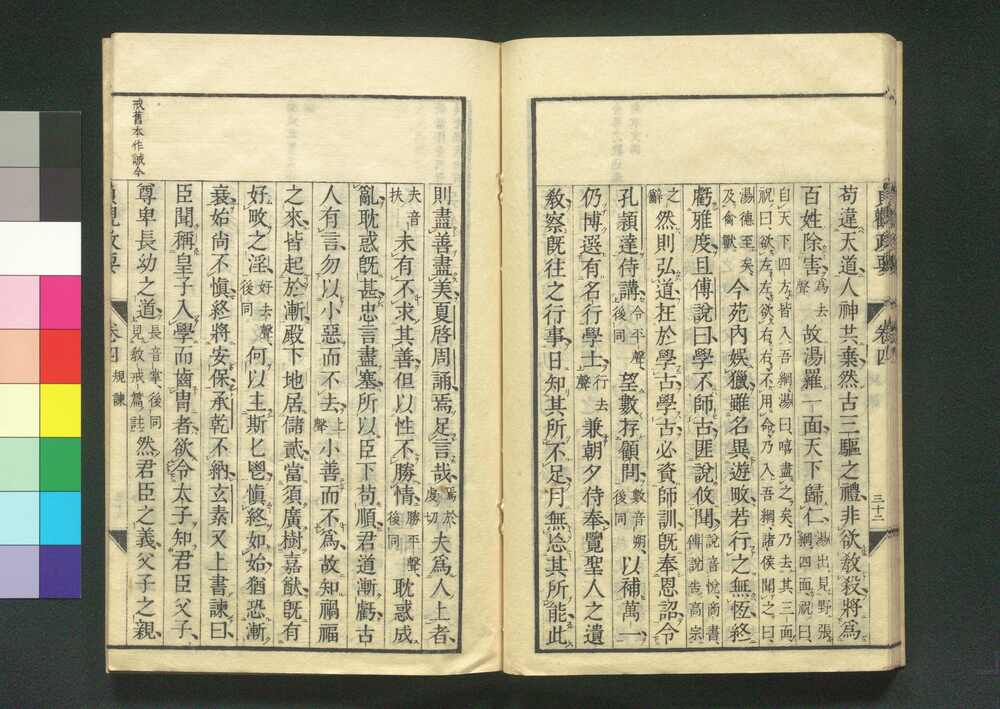 苟違天道人神共棄然古三驅之禮非欲敎殺將爲
百姓除害爲去聲故湯羅一面天下歸仁湯出見野張網四面祝曰
自天下四方皆入吾網湯曰嘻盡之矣乃去其三面
祝曰欲左左欲右右不用命乃入吾網諸侯聞之曰
湯德至矣及禽獸今苑內娛獵雖名異遊畋若行之無恆終
虧雅度且傅說曰學不師古匪說攸聞說音悅商書傅說告高宗
之辭然則弘道在於學古學古必資師訓旣奉恩詔令
孔穎達侍講令平聲後同望數存顧問數音朔後同以補萬一
仍博選有名行學士行去聲兼朝夕侍奉覽聖人之遺
敎察旣往之行事日知其所不足月無忘其所能此
則盡善盡美夏啓周誦焉足言哉焉於虔切夫爲人上者
夫音扶未有不求其善但以性不勝情勝平聲後同耽惑成
亂耽惑旣甚忠言盡塞所以臣下苟順君道漸虧古
人有言勿以小惡而不去上聲小善而不爲故知禍福
之來皆起於漸殿下地居儲貳當須廣樹嘉猷旣有
好畋之淫好去聲後同何以主斯匕鬯愼終如始猶恐漸
衰始尚不愼終將安保承乾不納玄素又上書諫曰
臣聞稱皇子入學而齒胄者欲令太子知君臣父子
尊卑長幼之道長音掌後同見敎戒篇註然君臣之義父子之親
戒舊本作誡今
貞觀政要
卷四
三十二
貞觀政要
卷四
規諫